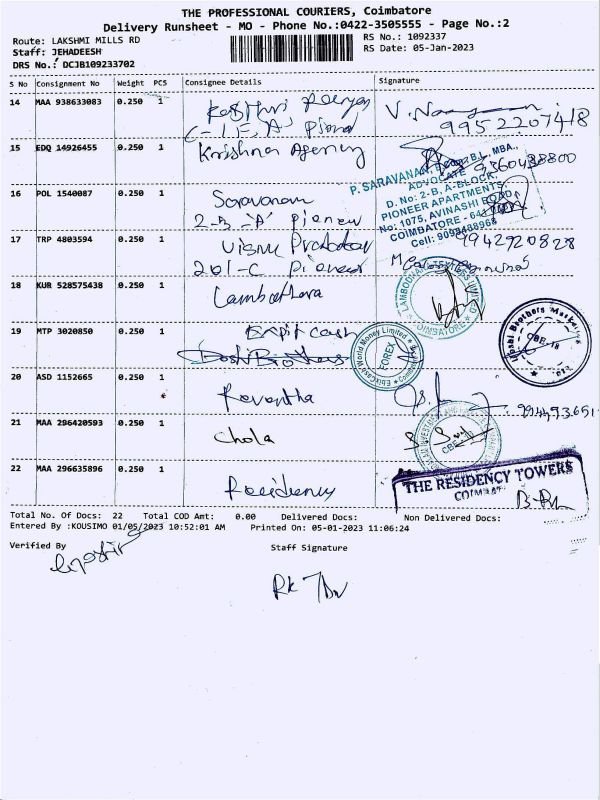 THE PROFESSIONAL COURIERS, Coimbatore
Delivery Runsheet - MO - Phone No.:0422-3505555 - Page No.:2
Route: LAKSHMI MILLS RD
RS No.: 1092337
Staff: JEHADEESH
RS Date: 05-Jan-2023
DRS No.: DCJB109233702
S No Consignment No Weight PCS Consignee Details Signature
14 MAA 938633083 0.250 1
9952207418
15 EDQ 14926455 0.250 1 Krishna Agency
9360488800
P. SARAVANAN,
ADVOCATE
D. No: 2-B, A-BLOCK,
PIONEER APARTMENTS,
No: 1075, AVINASHI ROAD,
COIMBATORE - 641
Cell: 9098488968
16 POL 1540087 0.250 1 Saravanan
2-B 'A' pioneer
17 TRP 4803594 0.250 1
9942920828
201-C pioneer
18 KUR 528575438 0.250 1 Lambodhara
LAMBODHARA TEXTILES LIMITED
COIMBATORE
19 MTP 3020850 0.250 1 Ebix cash
Doshi Brothers
EbixCash World Money Limited
FOREX
CBE-18
20 ASD 1152665 0.250 1
Revantha
21 MAA 296420593 0.250 1
Chola
22 MAA 296635896 0.250 1
Residency
THE RESIDENCY TOWERS
COIMBAT
Total No. Of Docs: 22 Total COD Amt: 0.00 Delivered Docs: Non Delivered Docs:
Entered By :KOUSIMO 01/05/2023 10:52:01 AM Printed On: 05-01-2023 11:06:24
Verified By
Staff Signature